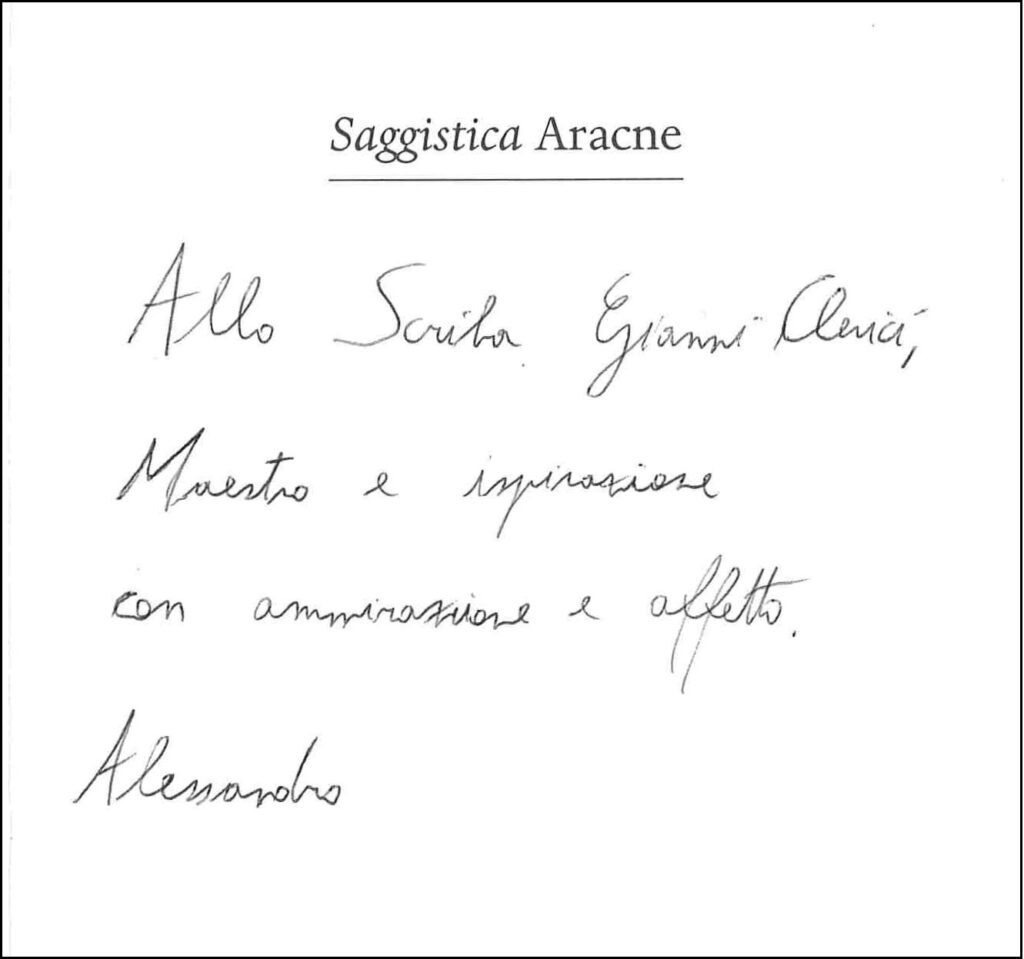 Saggistica Aracne
Allo Scriba Gianni Clerici,
Maestro e ispirazione
con ammirazione e affetto.
Alessandro